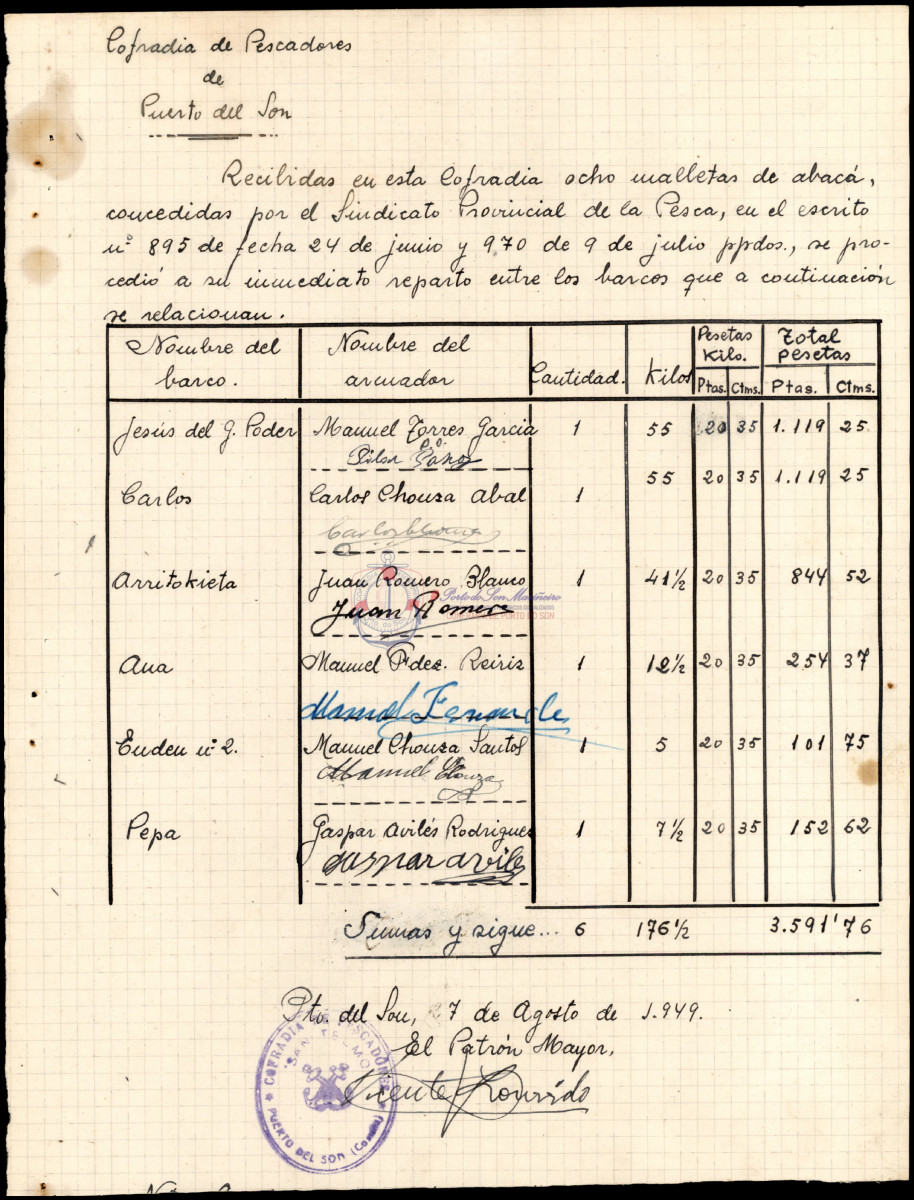 Cofradia de Pescadores
de
Puerto del Son
Recibidas en esta Cofradia ocho malletas de abacá,
concedidas por el Sindicato Provincial de la Pesca, en el escrito
nº 895 de fecha 24 de junio y 970 de 9 de julio ppdos., se pro-
cedió a su inmediato reparto entre los barcos que a continuación
se relacionan.
Nombre del barco. Nombre del armador Cantidad. Kilos Pesetas Kilo. Total pesetas
Ptas. Ctms. Ptas. Ctms.
Jesús del G. Poder Manuel Torres Garcia 1 55 20 35 1.119 25
P.O.
Carlos Carlos Chouza Abal 1 55 20 35 1.119 25
Carlos Chouza
Arritokieta Juan Romero Blanco 1 41½ 20 35 844 52
Juan Romero
Porto do Son Mariñeiro
Ana Manuel Fdez. Reiriz 1 12½ 20 35 254 37
Manuel Fernande
Euden nº 2. Manuel Chouza Santos 1 5 20 35 101 75
Manuel Chouza
Pepa Gaspar Avilés Rodrigues 1 7½ 20 35 152 62
Gaspar avile
Sumas y sigue... 6 176½ 3.591'76
Pto. del Son, 27 de Agosto de 1.949.
El Patrón Mayor,
Vicente
COFRADIA DE PESCADORES
"SAN TELMO"
PUERTO DEL SON (Coruña)